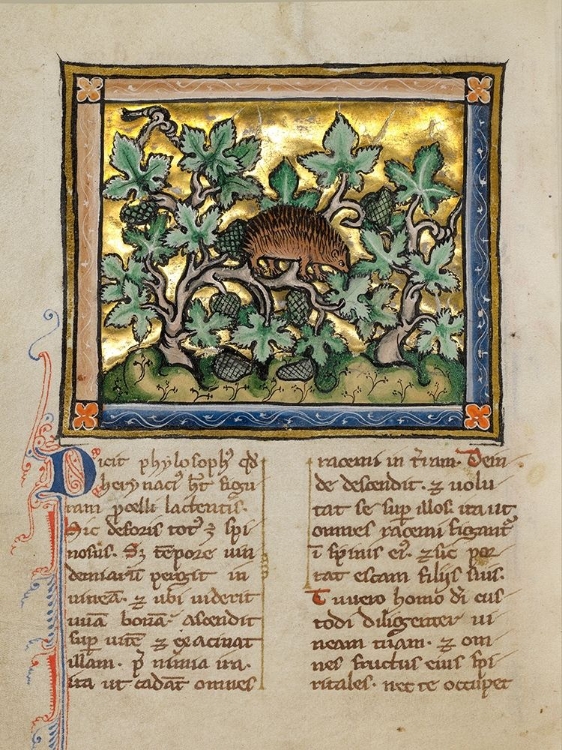 Dicit phylosophꝰ qđ
herynaciꝰ hʒ figu
ram pcelli lactentis.
Sic deforis totꝰ ⁊ spi
nosus. Sʒ tēpore uin
demiarū pergit in
uineā. ⁊ ubi uiderit
uuā bonā. ascendit
sup uitē ⁊ exacinat
illam. p̄ nimia ira.
ita ut cadāt omnes
racemi in t̄ram. Dein
de descendit. ⁊ uolu
tat se sup illos. ita ut
omnes racemi figantꝰ
ī spinis eiꝰ. ⁊ sic por
tat escam filijs suis.
Tu uero homo dī cus
todi diligenter ui
neam tuam. ⁊ om
nes fructus eius spi
ritales. nec te occupet